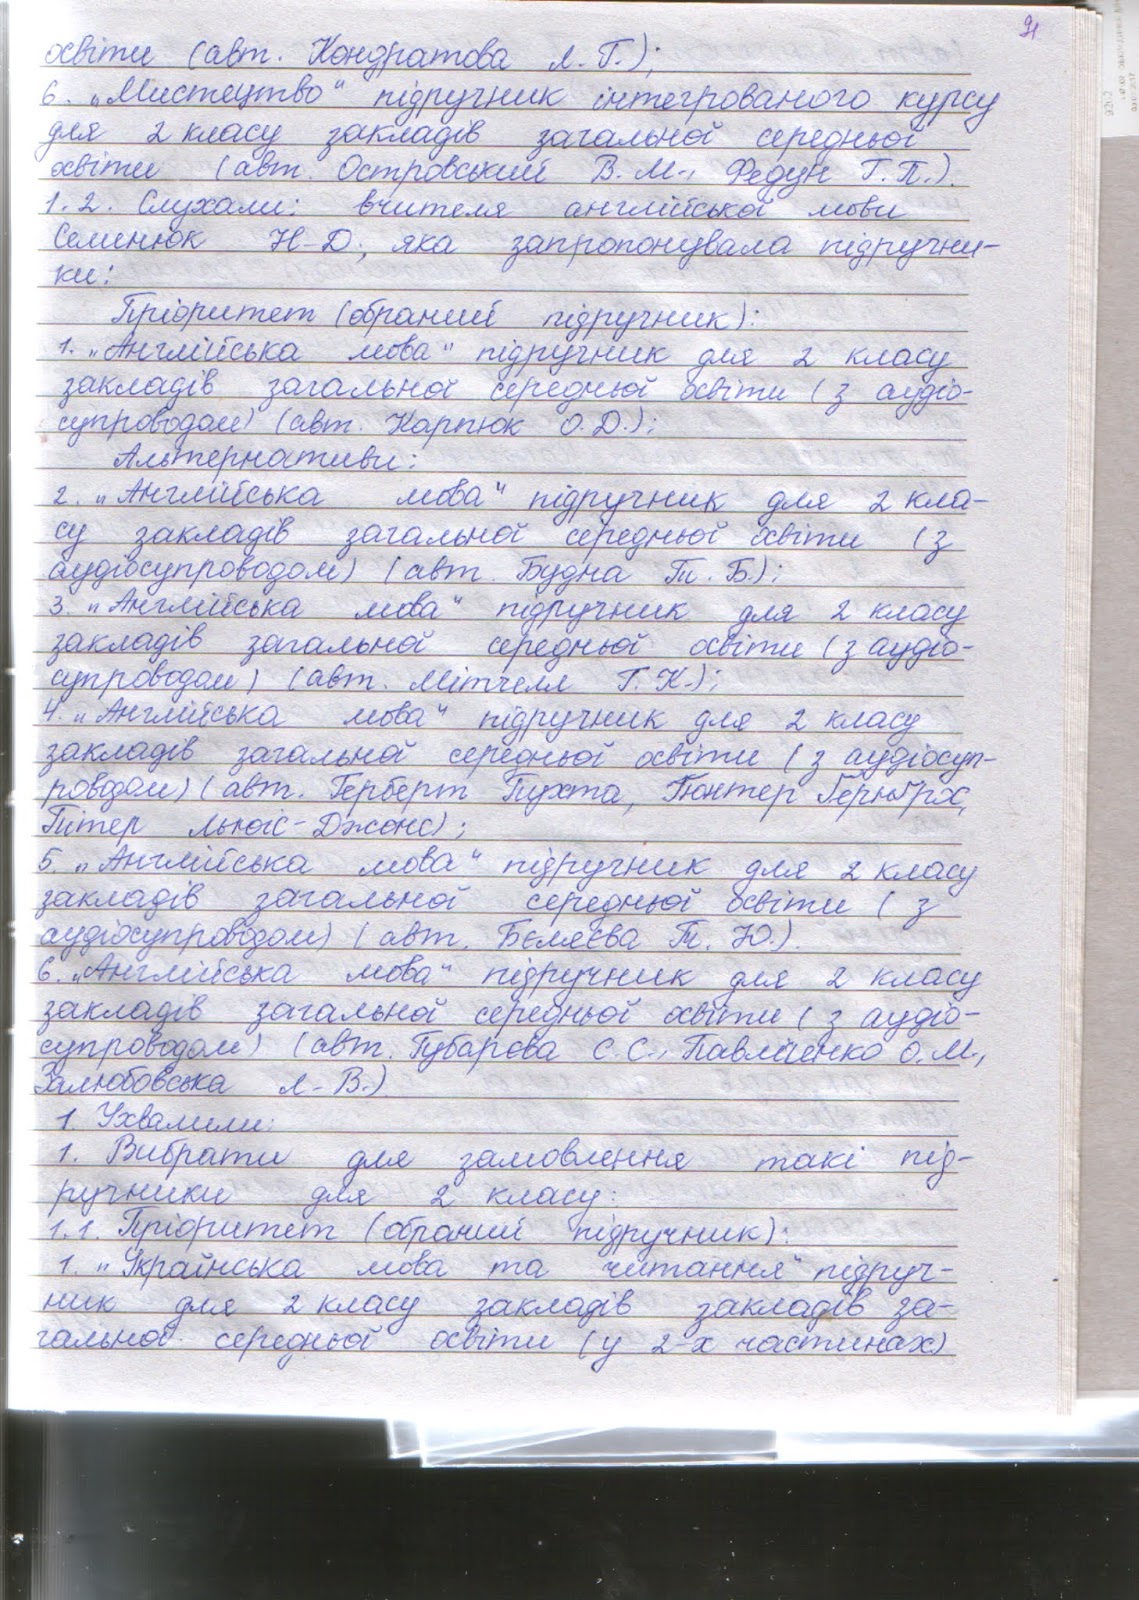 освіти (авт. Кондратова Л.Г.);
6. „Мистецтво“ підручник інтегрованого курсу
для 2 класу закладів загальної середньої
освіти (авт. Островський В.М., Федун Г.П.).
1.2. Слухали: вчителя англійської мови
Семенюк Н.Д., яка запропонувала підручни-
ки:
Пріоритет (обраний підручник):
1. „Англійська мова“ підручник для 2 класу
закладів загальної середньої освіти (з аудіо-
супроводом) (авт. Карпюк О.Д.);
Альтернативи:
2. „Англійська мова“ підручник для 2 кла-
су закладів загальної середньої освіти (з
аудіосупроводом) (авт. Будна Т.Б.);
3. „Англійська мова“ підручник для 2 класу
закладів загальної середньої освіти (з аудіо-
супроводом) (авт. Мітчелл Г.К.);
4. „Англійська мова“ підручник для 2 класу
закладів загальної середньої освіти (з аудіосуп-
роводом) (авт. Герберт Пухта, Гюнтер Ґернґрос,
Пітер Льюіс-Джонс);
5. „Англійська мова“ підручник для 2 класу
закладів загальної середньої освіти (з
аудіосупроводом) (авт. Бєляєва Т.Ю.).
6. „Англійська мова“ підручник для 2 класу
закладів загальної середньої освіти (з аудіо-
супроводом) (авт. Губарєва С.С., Павліченко О.М.,
Залюбовська Л.В.)
1. Ухвалили:
1. Вибрати для замовлення такі під-
ручники для 2 класу:
1.1. Пріоритет (обраний підручник):
1. „Українська мова та читання“ підруч-
ник для 2 класу закладів закладів за-
гальної середньої освіти (у 2-х частинах)